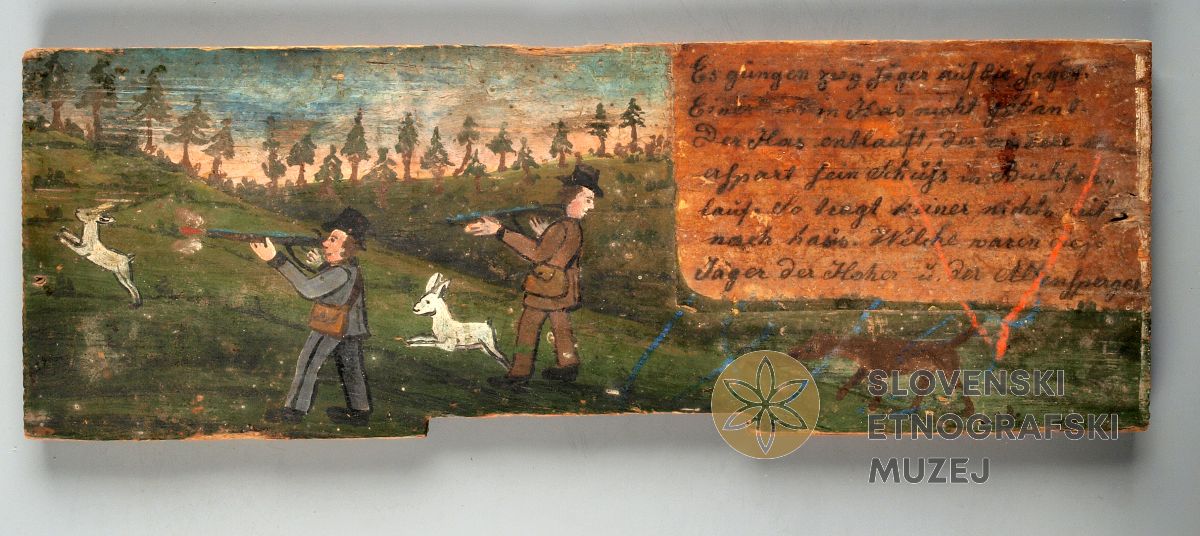 Es gungen zwÿ Jäger auf die Jagen.
Einer Has nicht
Der Has entlauft, der andere
erspart sein Schuss in
lauf. So tragt keiner nichts mit
nach haus. Welche waren diese
Jäger der Hoher u. der
SLOVENSKI
ETNOGRAFSKI
MUZEJ